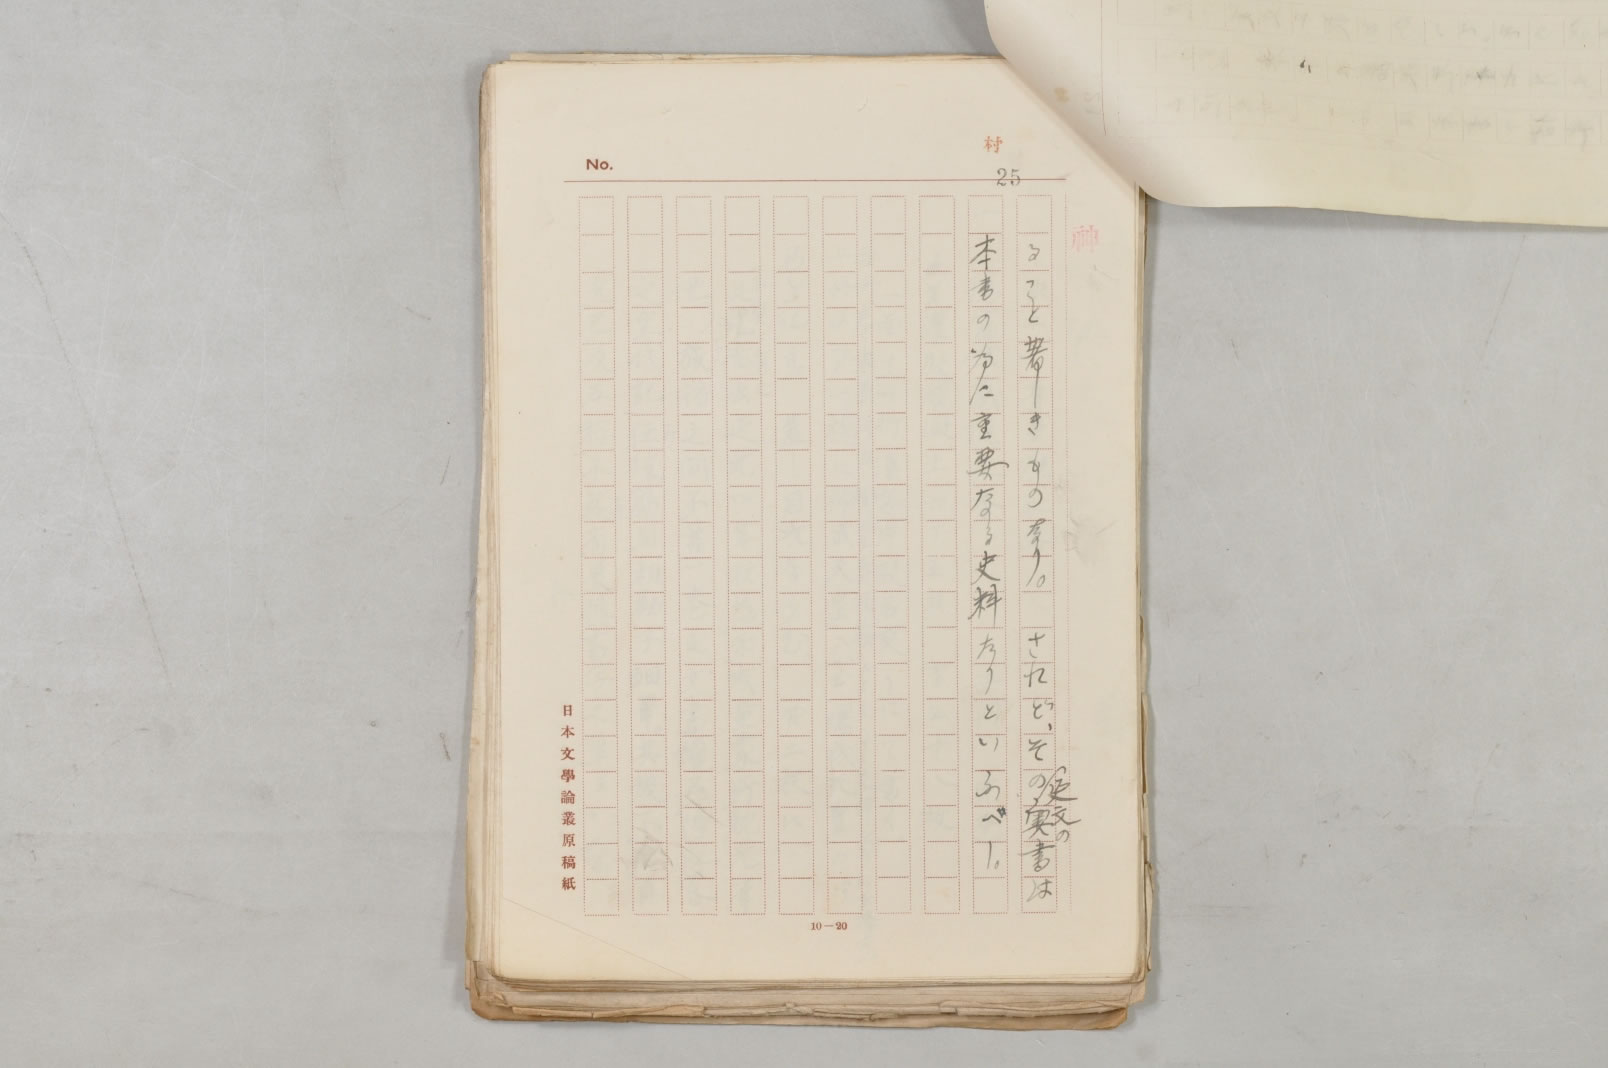 No.
村
25
神
ること著しきものなり。 されど、その実書は
延文の
本書の為に重要なる史料なりといふべし。
日本文學論叢原稿紙
10—20